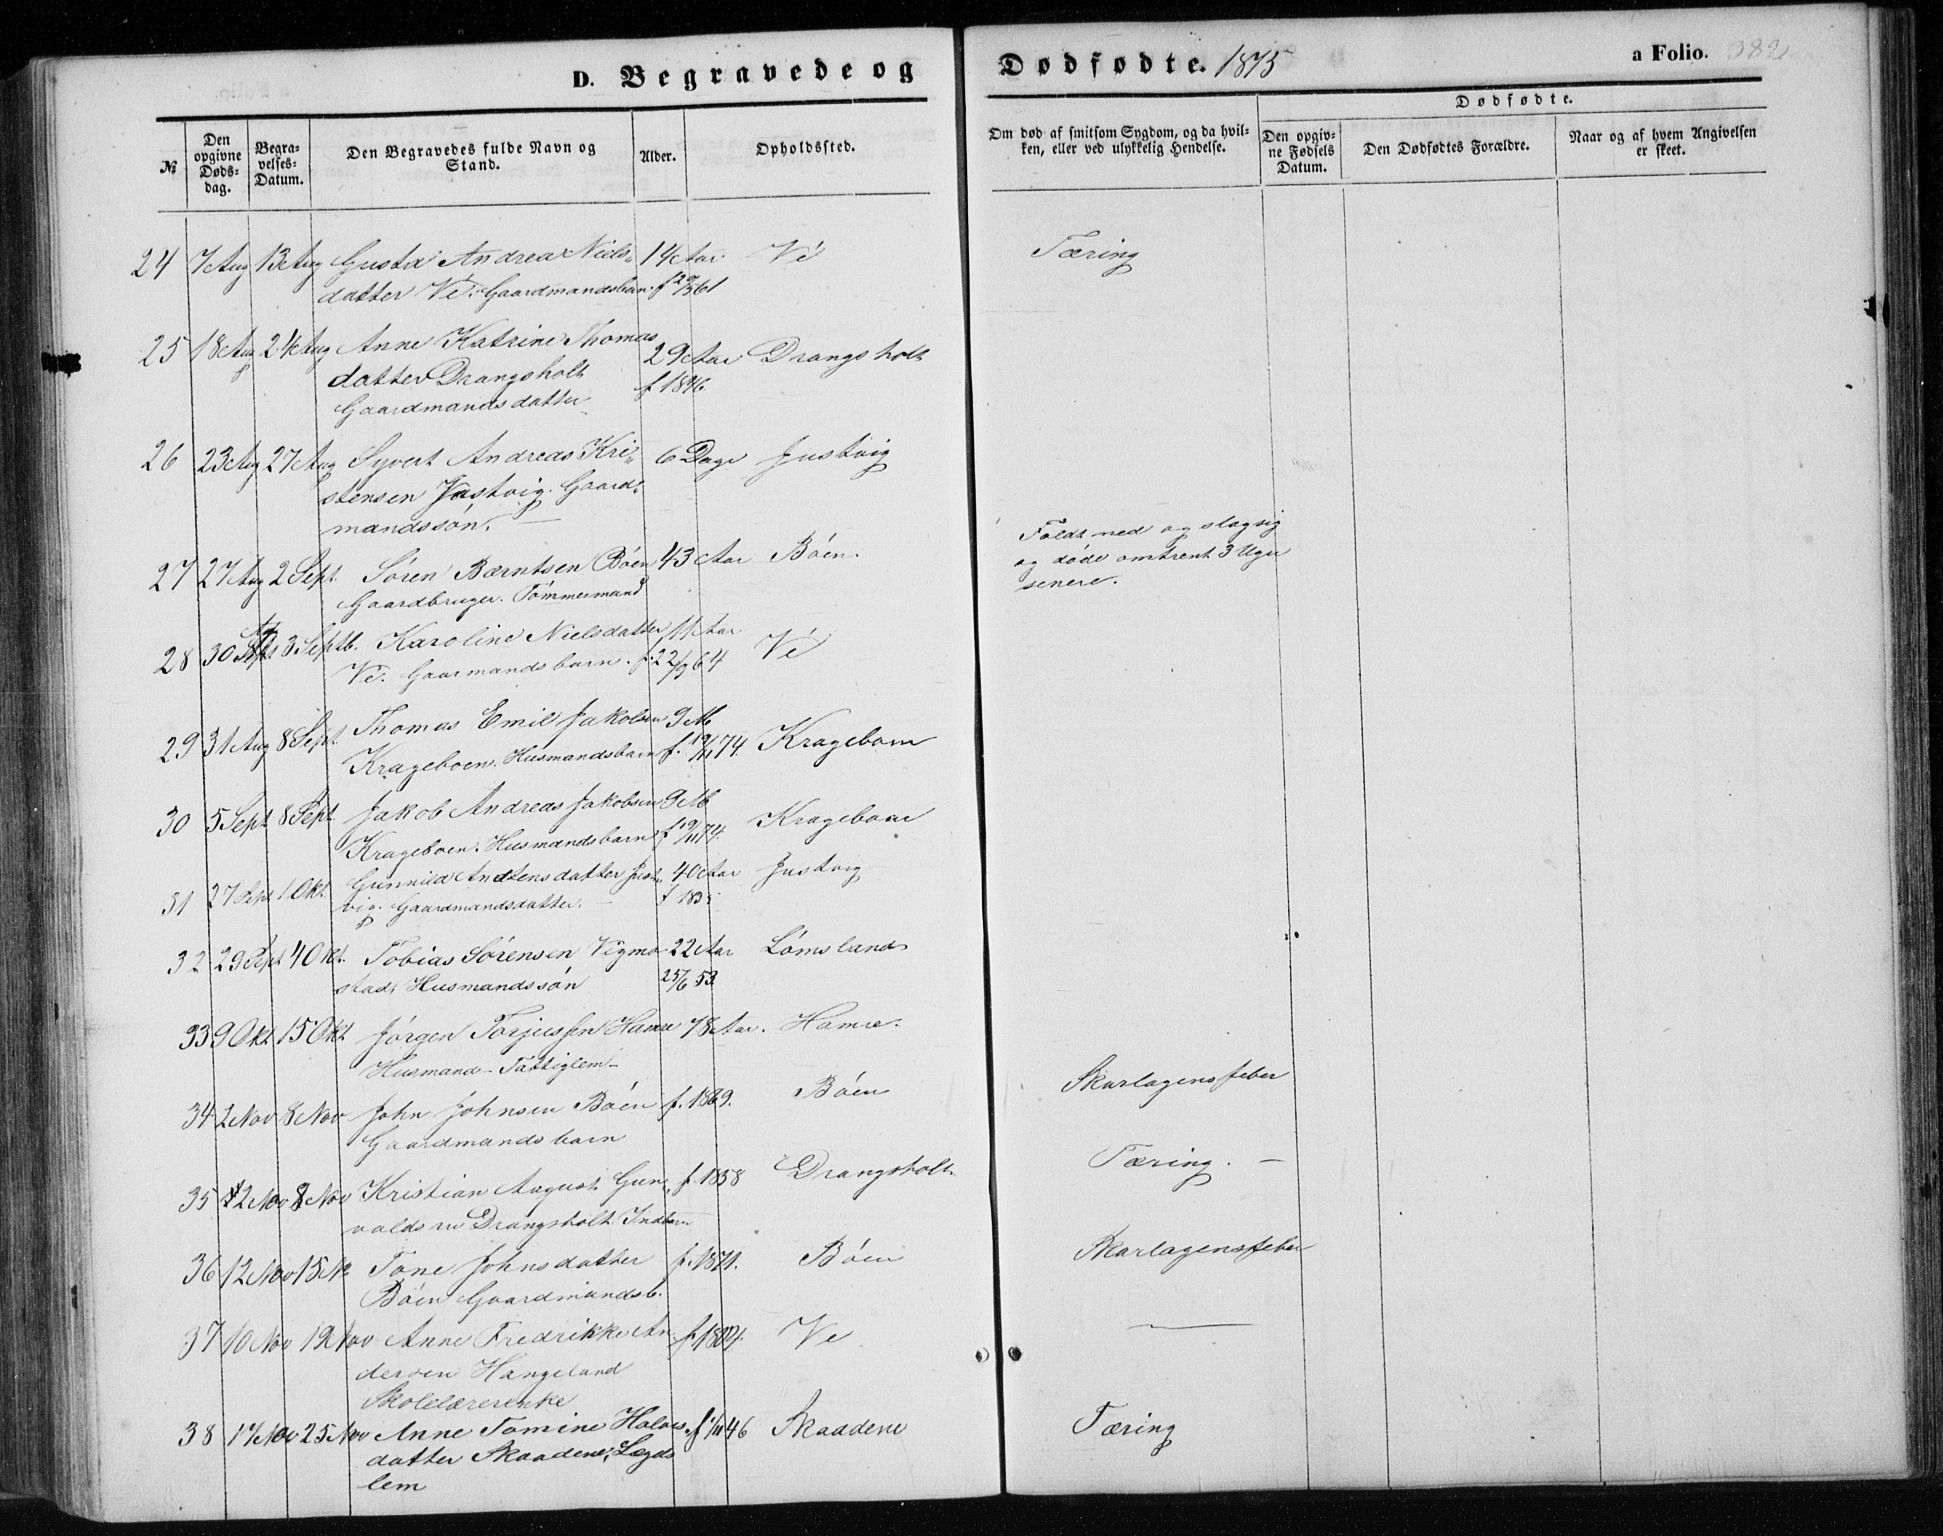 D. Begravede og Dødfødte. 1875 a Folio. 382
Dødfødte.
№ Den opgivne Dødsdag. Begravelses-Datum. Den Begravedes fulde Navn og Stand. Alder. Opholdssted. Om død af smitsom Sygdom, og da hvilken, eller ved ulykkelig Hendelse. Den opgivne Fødsels Datum. Den Dødfødtes Forældre. Naar og af hvem Angivelsen er skeet.
24 7 Aug 13 Aug Gusta Andrea Niels- 14 Aar Vé Tæring
datter Vé. Gaardmandsbarn f 61
25 18 Aug 24 Aug Anne Katrine Thomas 29 Aar Drangsholt
datter Drangsholt f 1846.
Gaardmandsdatter
26 23 Aug 27 Aug Syvert Andreas Kri- 6 Dage Justvig
stensen Justvig. Gaard-
mandssøn.
27 27 Aug 2 Sept. Søren Bærntsen Bóen 43 Aar Bóen. Faldt ned og slog sig
Gaardbruger. Tømmermand og døde omtrent 3 Uger
senere.
28 30 Aug 3 Septb. Karoline Nielsdatter 11 Aar Vé
Vé. Gaarmandsbarn. f. 22/9 64
29 31 Aug 8 Sept. Thomas Emil Jakobsen 9 M Krageboen
Krageboen. Husmandsbarn f. 19/11 74.
30 5 Sept 8 Sept. Jakob Andreas Jakobsen 9 M. Krageboen
Krageboen. Husmandsbarn f 19/11 74.
31 27 Sept 1 Okt. Gunnild Justv- 40 Aar Justvig
vig. Gaardmandsdatter. f 1835
32 29 Sept 4 Okt. Tobias Sørensen Vigmo- 22 Aar Lómsland
stad, Husmandssøn 25/6 53
33 9 Okt 15 Okt Jørgen Torjussen Hamre 78 Aar. Hamre.
Husmand - Fattiglem -
34 2 Nov 8 Nov John Johnsen Bóen f. 1869. Bóen Skarlagensfeber
Gaardmandsbarn
35 2 Nov 8 Nov Kristian August Gun- f. 1858 Drangsholt Tæring. -
valdsen Drangsholt.
36 12 Nov 15 N Tone Johnsdatter f. 1871. Bóen Skarlagensfeber
Bóen Gaardmandsb.
37 10 Nov 19 Nov Anne Fredrikke An- f. Ve
dersen Hangeland
Skolelærerenke
38 17 Nov 25 Nov Anne Tomine Halvors f 46 Skaadene Tæring
datter Skaadene, Lægds
lem